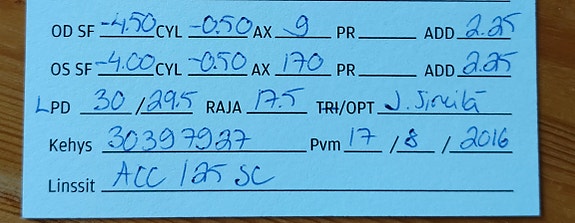 OD SF -4.50 CYL -0.50 AX 9 PR ADD 2.25
OS SF -4.00 CYL -0.50 AX 170 PR ADD 2.25
LPD 30 / 29.5 RAJA 17.5 TRI/OPT J. Sireitä
Kehys 30397927 Pvm 17 / 8 / 2016
Linssit ACC 1 25 SC